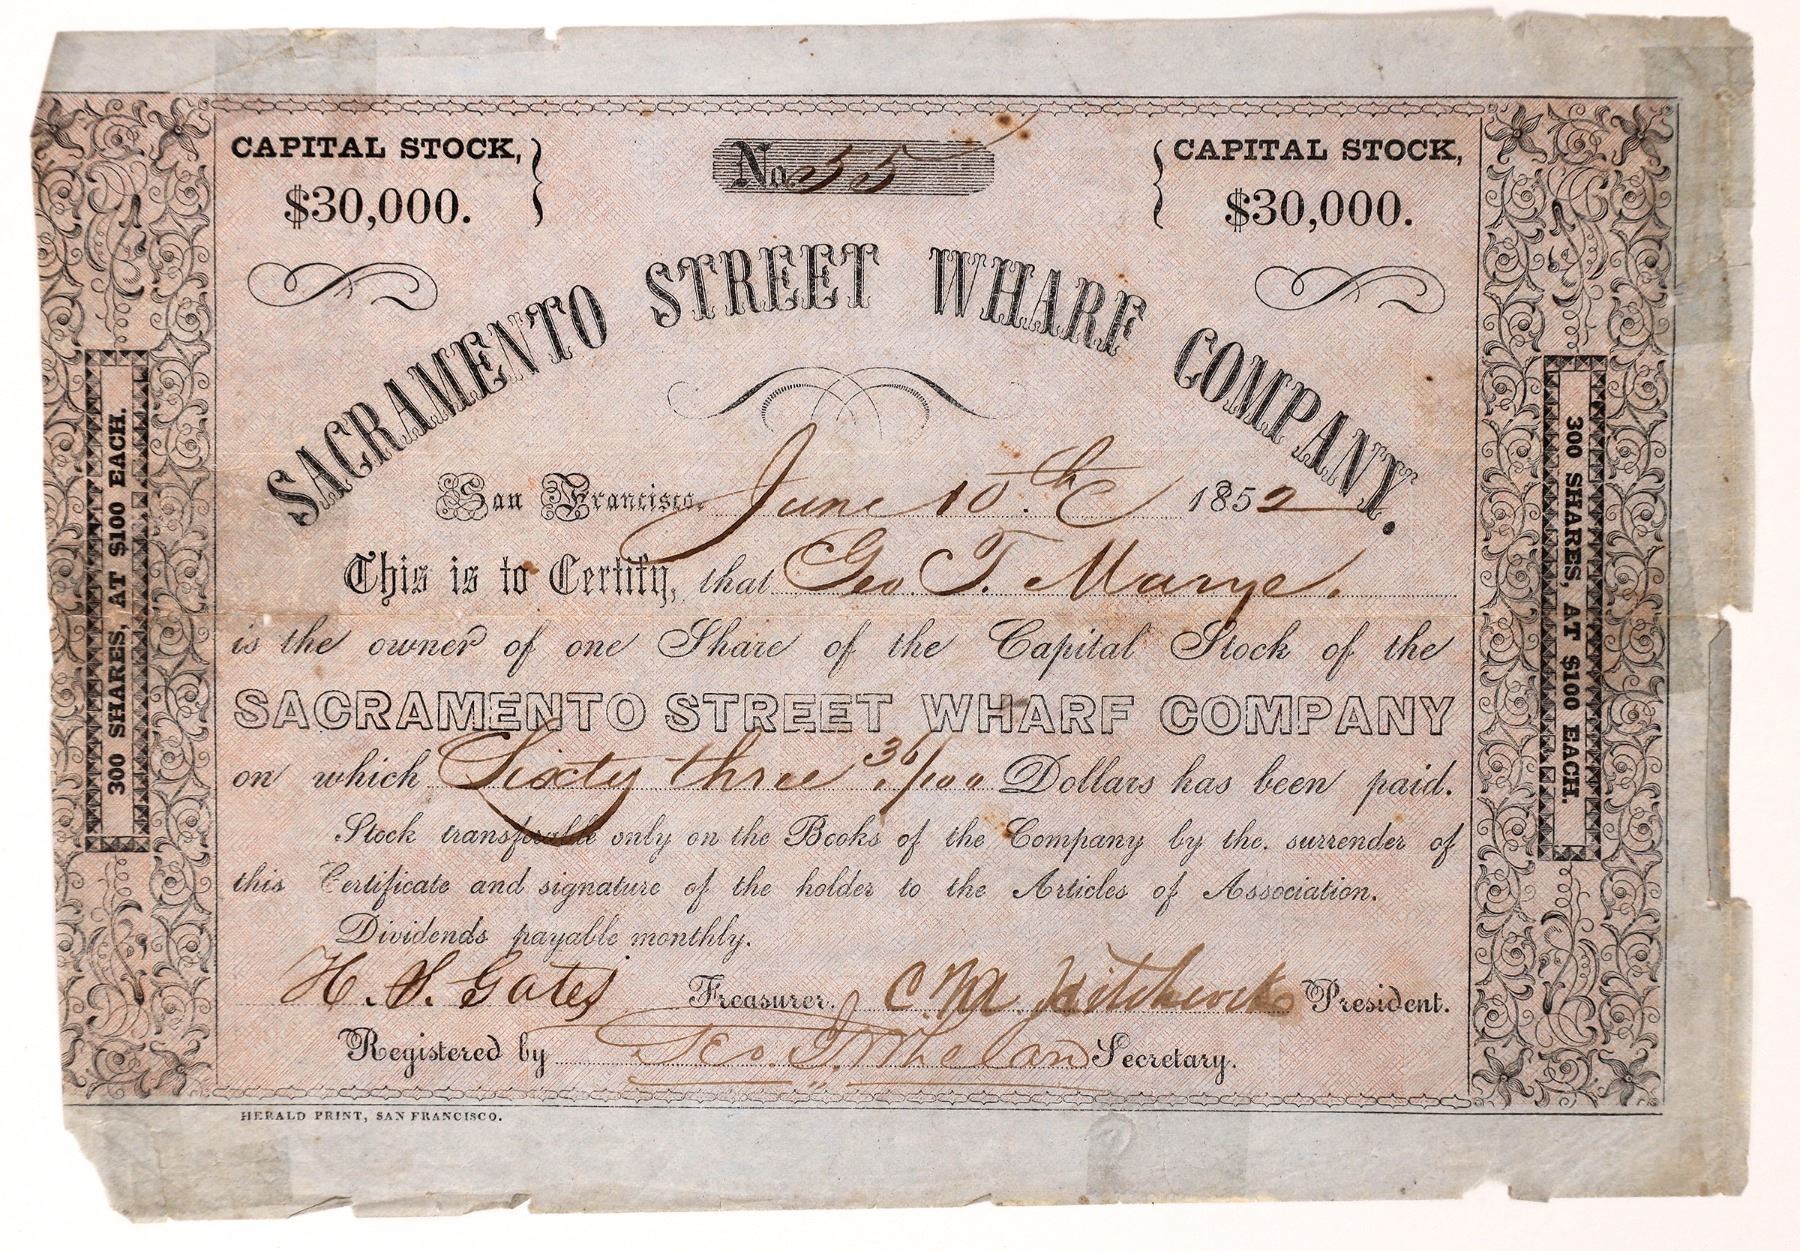 CAPITAL STOCK,
$30,000.
No. 55
CAPITAL STOCK,
$30,000.
SACRAMENTO STREET WHARF COMPANY.
San Francisco, June 10th 1852
This is to Certify, that Geo T. Marye.
is the owner of one Share of the Capital Stock of the
SACRAMENTO STREET WHARF COMPANY
on which Sixty three 30/100 Dollars has been paid.
Stock transferable only on the Books of the Company by the. surrender of
this Certificate and signature of the holder to the Articles of Association.
Dividends payable monthly.
H. S. Gates Treasurer. C. M. Hitchcock President.
Registered by Geo. J. Whelan Secretary.
HERALD PRINT, SAN FRANCISCO.
300 SHARES, AT $100 EACH.
300 SHARES, AT $100 EACH.